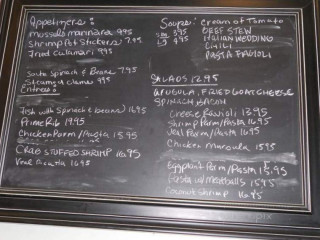 Appetizers:
Mussels marinara 9.95
Shrimp Pot Stickers 7.95
Fried Calamari 9.95
Sauté Spinach & Beans 7.95
Steamed Clams 9.95
Entrees:
Fish with Spinach & beans 16.95
Prime Rib 19.95
Chicken Parm / Pasta 15.95
CRAB STUFFED SHRIMP 16.95
Veal Ricatta 16.95
Soups: Cream of Tomato
Sm 3.95 BEEF STEW
Lg 4.95 ITALIAN WEDDING
CHILI
PASTA FAGIOLI
SALADS 12.95
ARUGULA, FRIED GOAT CHEESE
SPINACH BACON
Cheese Ravioli 13.95
Shrimp Parm / Pasta 16.95
Veal Parm / Pasta 16.95
Chicken Marsala 15.95
Eggplant Parm / Pasta 15.95
Pasta w/ Meatballs 15.95
Coconut Shrimp 16.95